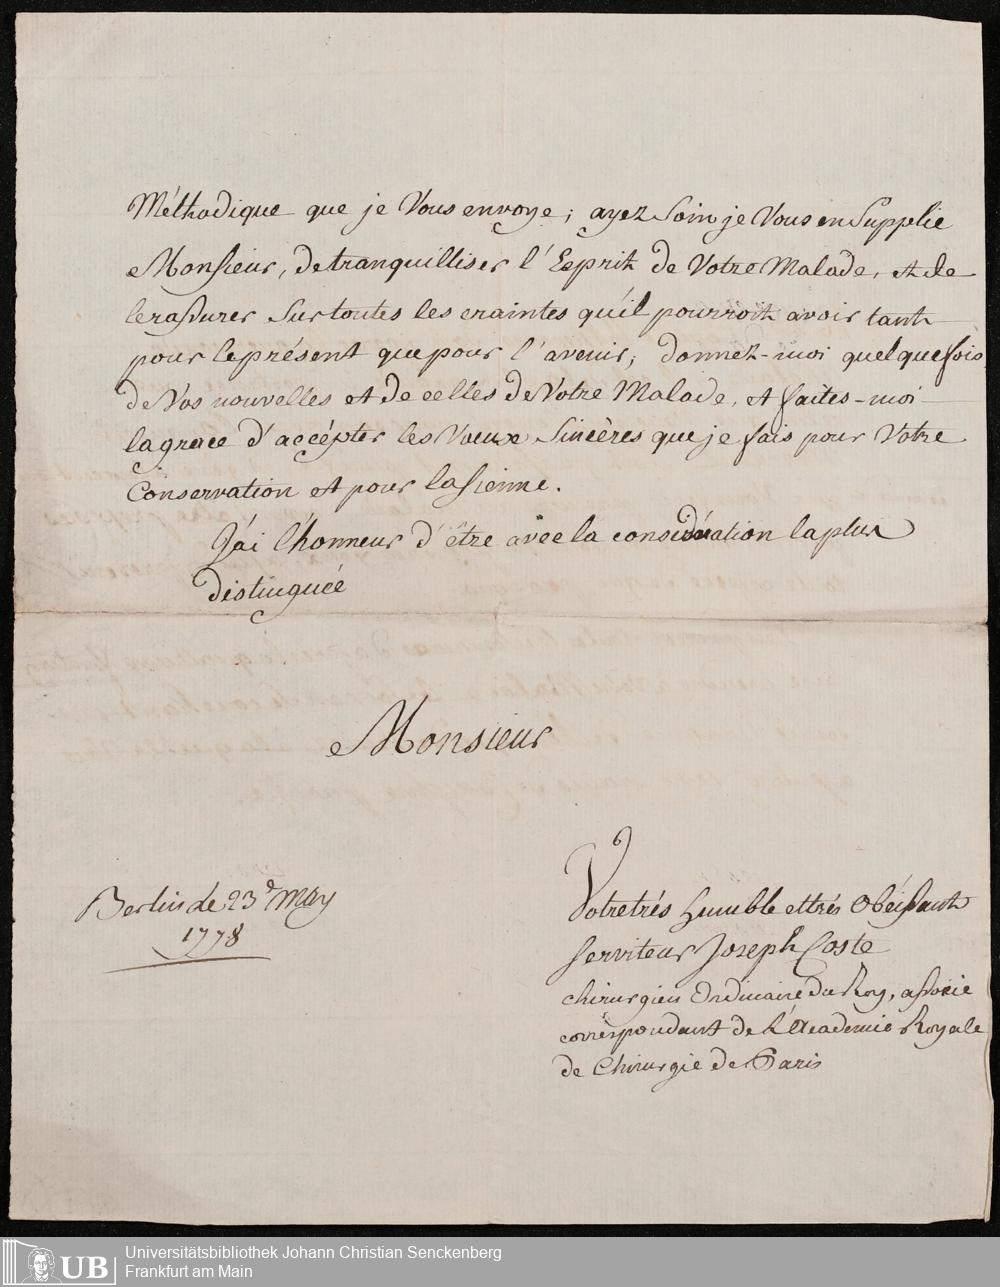 Méthodique que je Vous envoye; ayez Soin je Vous en Supplie
Monsieur, de tranquilliser l'Esprit de Votre Malade, et de
le rassurer Sur toutes les craintes qu'il pourroit avoir tant
pour le présent que pour l'avenir; donnez-moi quelque fois
de Vos nouvelles et de celles de Votre Malade, et faites-moi
la grace d'accépter les Vœux Sincères que je fais pour Votre
Conservation et pour la sienne.
J'ai l'honneur d'être avec la considération la plus
distinguée
Monsieur
Berlin de 23e May
1778
Votre trés humble et trés Obéissant
Serviteur Joseph Coste
chirurgien Ordinaire du Roy, associé
correspondant de L'Academie Royale
de Chirurgie de Paris
UB Universitätsbibliothek Johann Christian Senckenberg
Frankfurt am Main